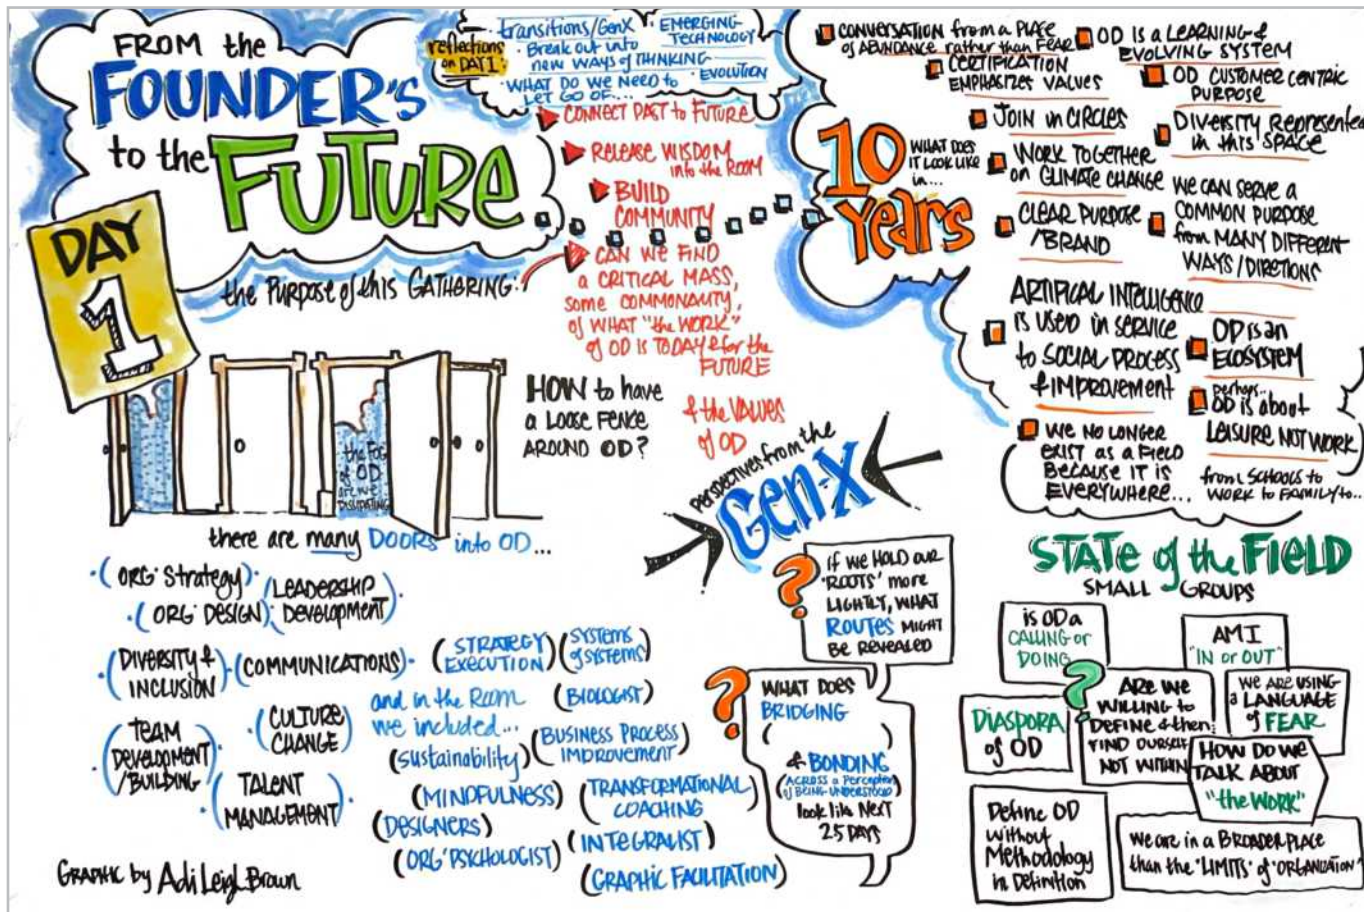 FROM the
FOUNDER's
to the
FUTURE
DAY
1
reflections
on DAY 1:
transitions/GenX
· EMERGING
TECHNOLOGY
· Break out into
new WAYS of THINKING
· WHAT DO WE NEED to
LET GO OF....
· EVOLUTION
the PURPOSE of this GATHERING:
CONNECT PAST to FUTURE
RELEASE WISDOM
into the ROOM
BUILD
COMMUNITY
CAN WE FIND
a CRITICAL MASS,
some COMMONALITY,
of WHAT "the WORK"
of OD IS TODAY & for the
FUTURE
& the VALUES
of OD
HOW to have
a LOOSE FENCE
AROUND OD?
the FOG
of OD
are we
DISSIPATING
there are many DOORS into OD...
(ORG. Strategy)
(LEADERSHIP
Development)
(ORG. DESIGN)
(DIVERSITY &
INCLUSION)
(COMMUNICATIONS)
(TEAM
DEVELOPMENT
/BUILDING)
(CULTURE
CHANGE)
(TALENT
MANAGEMENT)
and in the Room
we included...
(STRATEGY
EXECUTION)
(SYSTEMS
of SYSTEMS)
(BIOLOGIST)
(sustainability)
(BUSINESS PROCESS
IMPROVEMENT)
(MINDFULNESS)
(TRANSFORMATIONAL
COACHING)
(DESIGNERS)
(INTEGRALIST)
(ORG' PSYCHOLOGIST)
(GRAPHIC FACILITATION)
GRAPHIC by Adi Leigh Brown
10
Years
WHAT DOES
IT LOOK LIKE
in...
CONVERSATION from a PLACE
of ABUNDANCE rather than FEAR
CERTIFICATION
EMPHASIZES VALUES
JOIN in CIRCLES
WORK TOGETHER
on CLIMATE CHANGE
CLEAR PURPOSE
/BRAND
ARTIFICAL INTELLIGENCE
is USED in SERVICE
to SOCIAL PROCESS
& IMPROVEMENT
WE NO LONGER
EXIST AS A FIELD
BECAUSE IT IS
EVERYWHERE...
OD IS A LEARNING &
EVOLVING SYSTEM
OD CUSTOMER CENTRIC
PURPOSE
DIVERSITY Represented
in this SPACE
WE CAN SERVE A
COMMON PURPOSE
from MANY DIFFERENT
WAYS/DIRETIONS
OD IS an
ECOSYSTEM
perhaps..
OD is about
LEISURE NOT WORK
from SCHOOLS to
WORK to FAMILY to...
Perspectives from the
Gen-X
?
If WE HOLD OUR
'ROOTS' more
LIGHTLY, WHAT
ROUTES MIGHT
BE REVEALED
?
WHAT DOES
BRIDGING
( )
& BONDING
(ACROSS a Perception
of BEING UNDERSTOOD)
look like NEXT
2.5 DAYS
STATE of the FIELD
SMALL GROUPS
is OD a
CALLING or
DOING
?
AM I
"IN or OUT"
DIASPORA
of OD
ARE WE
WILLING to
DEFINE & then
FIND OURSELF
NOT WITHIN
WE ARE USING
a LANGUAGE
of FEAR
HOW DO WE
TALK ABOUT
"the WORK"
Define OD
without
Methodology
in Definition
we are in a BROADER PLACE
than the "LIMITS" of "ORGANIZATION"